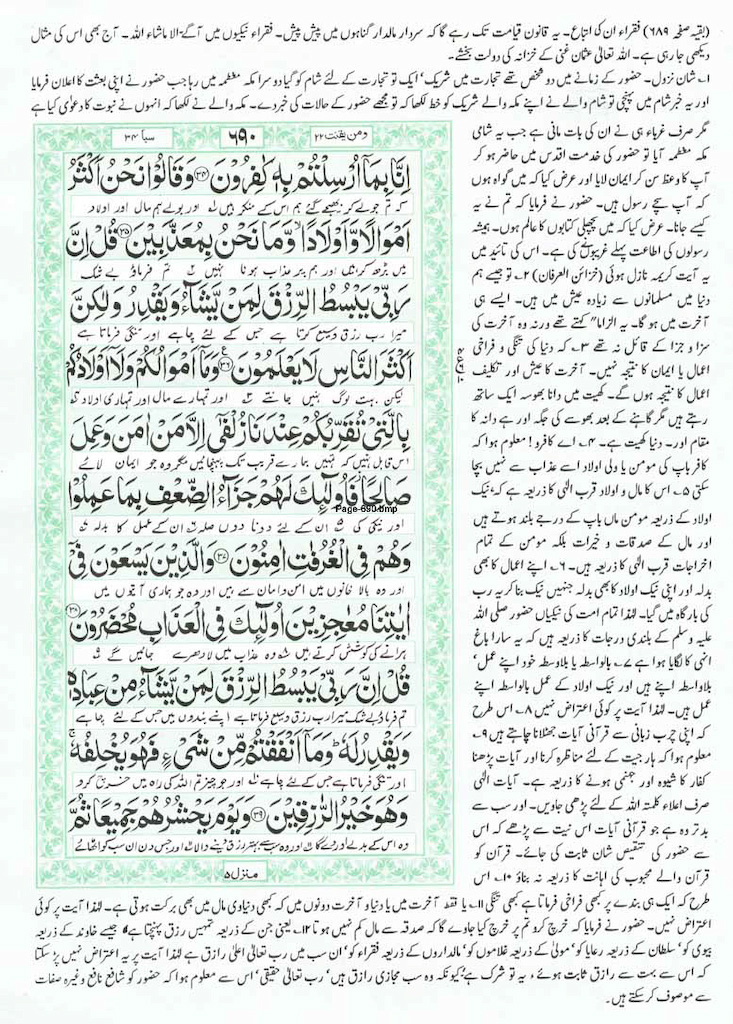 (بقیہ صفحہ ۶۸۹) فقراء ان کی اتباع۔ یہ قانون قیامت تک رہے گا کہ سردار مالدار گناہوں میں پیش پیش۔ فقراء نیکیوں میں آگے۔ الا ماشاء اللہ۔ آج بھی اس کی مثال
دیکھی جا رہی ہے۔ اللہ تعالیٰ عثمان غنی کے خزانہ کی دولت بخشے۔
۱۔ شان نزول۔ حضور کے زمانے میں دو شخص تھے تجارت میں شریک' ایک تو تجارت کے لئے شام کو گیا دوسرا مکہ معظمہ میں رہا جب حضور نے اپنی بعثت کا اعلان فرمایا
اور یہ خبر شام میں پہنچی تو شام والے نے اپنے مکہ والے شریک کو خط لکھا کہ تو مجھے حضور کے حالات کی خبر دے۔ مکہ والے نے لکھا کہ انہوں نے نبوت کا دعویٰ کیا ہے
مگر صرف غرباء ہی نے ان کی بات مانی ہے جب یہ شامی
مکہ معظمہ آیا تو حضور کی خدمت اقدس میں حاضر ہو کر
آپ کا وعظ سن کر ایمان لایا اور عرض کیا کہ میں گواہ ہوں
کہ آپ سچے رسول ہیں۔ حضور نے فرمایا کہ تم نے یہ
کیسے جانا۔ عرض کیا کہ میں پچھلی کتابوں کا عالم ہوں۔ ہمیشہ
رسولوں کی اطاعت پہلے غریبوں نے کی ہے۔ اس کی تائید میں
یہ آیت کریمہ نازل ہوئی (خزائن العرفان) ۲۔ تو جیسے ہم
دنیا میں مسلمانوں سے زیادہ عیش میں ہیں۔ ایسے ہی
آخرت میں ہو گا۔ یہ الزاما" کہتے تھے ورنہ وہ آخرت کی
سزا و جزا کے قائل نہ تھے ۳۔ کہ دنیا کی تنگی و فراخی
اعمال یا ایمان کا نتیجہ نہیں۔ آخرت کا عیش اور تکلیف
اعمال کا نتیجہ ہوں گے۔ کھیت میں دانا بھوسہ ایک ساتھ
رہتے ہیں مگر گاہنے کے بعد بھوسے کی جگہ اور ہے دانہ کا
مقام اور۔ دنیا کھیت ہے۔ ۴۔ اے کافرو! معلوم ہوا کہ
کافر باپ کی مومن یا ولی اولاد اسے عذاب سے نہیں بچا
سکتی ۵۔ اس کا مال و اولاد قرب الٰہی کا ذریعہ ہے کہ نیک
اولاد کے ذریعہ مومن ماں باپ کے درجے بلند ہوتے ہیں
اور مال کے صدقات و خیرات بلکہ مومن کے تمام
اخراجات قرب الٰہی کا ذریعہ ہیں۔ ۶۔ اپنے اعمال کا بھی
بدلہ اور اپنی نیک اولاد کا بھی بدلہ جنہیں نیک بنا کر یہ رب
کی بارگاہ میں گیا۔ لہٰذا تمام امت کی نیکیاں حضور صلی اللہ
علیہ وسلم کے بلندی درجات کا ذریعہ ہیں کہ یہ سارا باغ
انہی کا لگایا ہوا ہے ۷۔ بالواسطہ یا بلاوسطہ خود اپنے عمل'
بلاواسطہ اپنے ہیں اور نیک اولاد کے عمل بالواسطہ اپنے
عمل ہیں۔ لہٰذا آیت پر کوئی اعتراض نہیں ۸۔ اس طرح کہ
اپنی چرب زبانی سے قرآنی آیات جھٹلانا چاہتے ہیں ۹۔
معلوم ہوا کہ ہار جیت کے لئے مناظرہ کرنا اور آیات پڑھنا
کفار کا شیوہ اور جہنمی ہونے کا ذریعہ ہے۔ آیات الٰہی
صرف اعلاء کلمۃ اللہ کے لئے پڑھی جاویں۔ اور سب سے
بدتر وہ ہے جو قرآنی آیات اس نیت سے پڑھے کہ اس
سے حضور کی تنقیص شان ثابت کی جائے۔ قرآن کو
قرآن والے محبوب کی اہانت کا ذریعہ نہ بناؤ ۱۰۔ اس
ومن یقنت ۲۲
۶۹۰
سبا ۳۴
اِنَّا بِمَاۤ اُرْسِلْتُمْ بِهٖ كٰفِرُوْنَ ۳۴ وَقَالُوْا نَحْنُ اَكْثَرُ
کہ تم جو لے کر بھیجے گئے ہم اس کے منکر ہیں اور بولے ہم مال اور اولاد
اَمْوَالًا وَّاَوْلَادًا وَّمَا نَحْنُ بِمُعَذَّبِيْنَ ۳۵ قُلْ اِنَّ
میں بڑھ کر ہیں اور ہم پر عذاب ہونا نہیں تم فرماؤ بے شک
رَبِّيْ يَبْسُطُ الرِّزْقَ لِمَنْ يَّشَآءُ وَيَقْدِرُ وَلٰكِنَّ
میرا رب رزق وسیع کرتا ہے جس کے لئے چاہے اور تنگی فرماتا ہے
اَكْثَرَ النَّاسِ لَا يَعْلَمُوْنَ ۳۶ وَمَاۤ اَمْوَالُكُمْ وَلَاۤ اَوْلَادُكُمْ
لیکن بہت لوگ نہیں جانتے اور تمہارے مال اور تمہاری اولاد
بِالَّتِيْ تُقَرِّبُكُمْ عِنْدَنَا زُلْفٰۤى اِلَّا مَنْ اٰمَنَ وَعَمِلَ
اس قابل نہیں کہ تمہیں ہمارے قریب تک پہنچائیں مگر وہ جو ایمان لائے
صَالِحًا فَاُولٰٓئِكَ لَهُمْ جَزَآءُ الضِّعْفِ بِمَا عَمِلُوْا
Page-690.bmp
اور نیکی کی ان کے لئے دونا دوں صلہ ان کے عمل کا بدلہ
وَهُمْ فِي الْغُرُفٰتِ اٰمِنُوْنَ ۳۷ وَالَّذِيْنَ يَسْعَوْنَ فِيْۤ
اور وہ بالا خانوں میں امن و امان سے ہیں اور وہ جو ہماری آیتوں میں
اٰيٰتِنَا مُعٰجِزِيْنَ اُولٰٓئِكَ فِي الْعَذَابِ مُحْضَرُوْنَ ۳۸
ہرانے کی کوشش کرتے ہیں وہ عذاب میں لا دھرے جائیں گے
قُلْ اِنَّ رَبِّيْ يَبْسُطُ الرِّزْقَ لِمَنْ يَّشَآءُ مِنْ عِبَادِهٖ
تم فرماؤ بے شک میرا رب رزق وسیع فرماتا ہے اپنے بندوں میں جس کے لئے چاہے
وَيَقْدِرُ لَهٗ وَمَاۤ اَنْفَقْتُمْ مِّنْ شَيْءٍ فَهُوَ يُخْلِفُهٗ
اور تنگی فرماتا ہے جس کے لئے چاہے اور جو چیز تم اللہ کی راہ میں خرچ کرو
وَهُوَ خَيْرُ الرّٰزِقِيْنَ ۳۹ وَيَوْمَ يَحْشُرُهُمْ جَمِيْعًا ثُمَّ
وہ اس کے بدلے اور دے گا اور وہ سب سے بہتر رزق دینے والا اور جس دن ان سب کو اٹھائے
منزل ۵
طرح کہ ایک ہی بندے پر کبھی فراخی فرماتا ہے کبھی تنگی ۱۱۔ یا فقط آخرت میں یا دنیا و آخرت دونوں میں کہ کبھی دنیاوی مال میں بھی برکت ہوتی ہے۔ لہٰذا آیت پر کوئی
اعتراض نہیں۔ حضور نے فرمایا کہ خرچ کرو تم پر خرچ کیا جاوے گا کہ صدقہ سے مال کم نہیں ہوتا ۱۲۔ یعنی جن کے ذریعہ تمہیں رزق پہنچتا ہے جیسے خاوند کے ذریعہ
بیوی کو' سلطان کے ذریعہ رعایا کو' مولیٰ کے ذریعہ غلاموں کو' مالداروں کے ذریعہ فقراء کو' ان سب میں رب تعالیٰ اعلیٰ رازق ہے لہٰذا آیت پر یہ اعتراض نہیں پڑ سکتا
کہ اس سے بہت سے رازق ثابت ہوئے' یہ تو شرک ہے کیونکہ وہ سب مجازی رازق ہیں' رب تعالیٰ حقیقی' اس سے معلوم ہوا کہ حضور کو شافع نافع وغیرہ صفات
سے موصوف کر سکتے ہیں۔